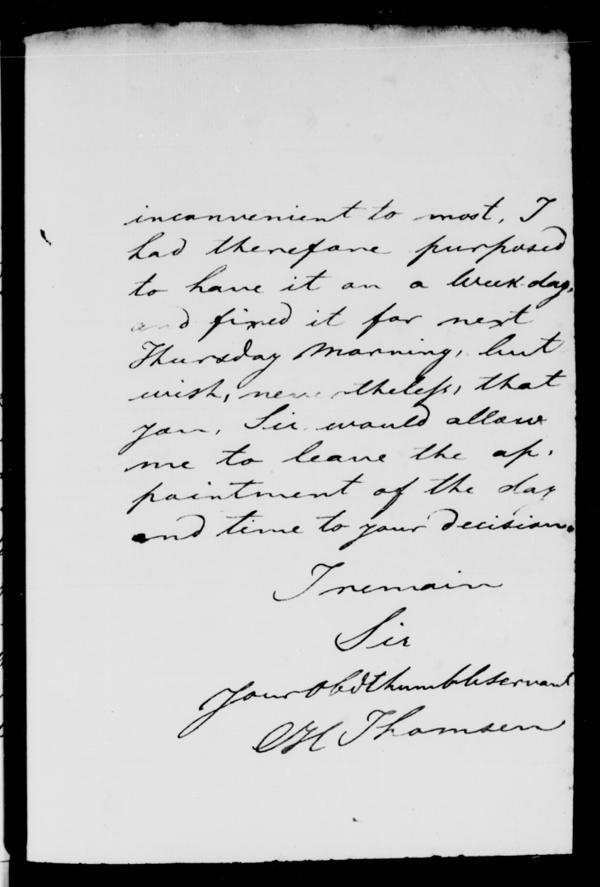 inconvenient to most, I
had therefore purposed
to have it on a Week-day,
and fixed it for next
Thursday Morning, but
wish, nevertheless, that
you, Sir would allow
me to leave the ap-
pointment of the day
and time to your decision.
I remain
Sir
Your obdt humble servant
CH Thomsen